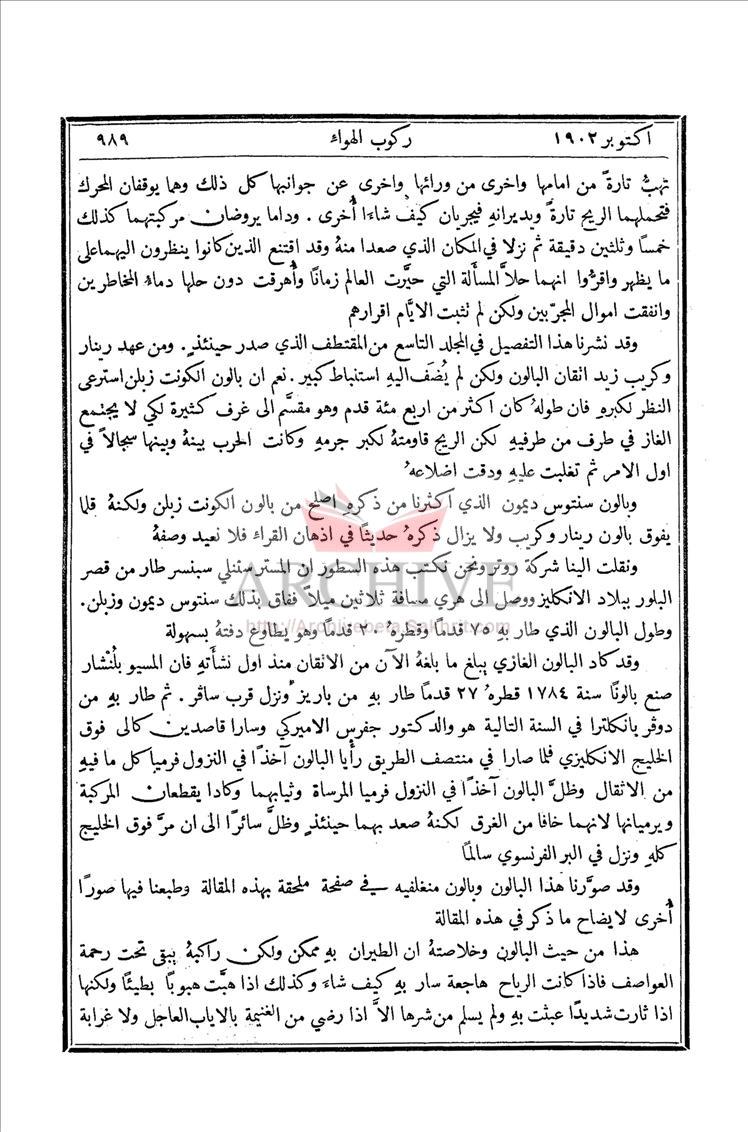 اكتوبر ١٩٠٢ ركوب الهواء ٩٨٩
تهبُّ تارةً من امامها واخرى من ورائها واخرى عن جوانبها كل ذلك وهما يوقفان المحرك
فتحملهما الريح تارةً ويديرانهِ فيجريان كيف شاءا أُخرى . وداما يروضان مركبتهما كذلك
خمساً وثلثين دقيقة ثم نزلا في المكان الذي صعدا منهُ وقد اقتنع الذين كانوا ينظرون اليهما على
ما يظهر واقرُّوا انهما حلاَّ المسأَلة التي حيَّرت العالم زمانًا وأُهرقت دون حلها دماءُ المخاطرين
وانفقت اموال المجرّبين ولكن لم تثبت الايَّام اقرارهم
وقد نشرنا هذا التفصيل في المجلد التاسع من المقتطف الذي صدر حينئذٍ . ومن عهد رينار
وكريب زيد اتقان البالون ولكن لم يُضَف اليهِ استنباط كبير . نعم ان بالون الكونت زبلن استرعى
النظر لكبرهِ فان طولهُ كان اكثر من اربع مئة قدم وهو مقسَّم الى غرف كثيرة لكي لا يجتمع
الغاز في طرف من طرفيهِ لكن الريح قاومتهُ لكبر جرمهِ وكانت الحرب بينهُ وبينها سجالاً في
اول الامر ثم تغلبت عليهِ ودقت اضلاعهُ
وبالون سنتوس ديمون الذي اكثرنا من ذكرهِ اصلح من بالون الكونت زبلن ولكنهُ قلما
يفوق بالون رينار وكريب ولا يزال ذكرهُ حديثًا في اذهان القراء فلا نعيد وصفهُ
ونقلت الينا شركة روتر ونحن نكتب هذه السطور ان المستر ستنلي سبنسر طار من قصر
البلور ببلاد الانكليز ووصل الى هري مسافة ثلاثين ميلاً ففاق بذلك سنتوس ديمون وزبلن.
وطول البالون الذي طار بهِ ٧٥ قدمًا وقطرهُ ٢٠ قدمًا وهو يطاوع دفتهُ بسهولة
وقد كاد البالون الغازي يبلغ ما بلغهُ الآن من الاتقان منذ اول نشأتهِ فان المسيو بلُنْشار
صنع بالونًا سنة ١٧٨٤ قطرهُ ٢٧ قدمًا طار بهِ من باريز ونزل قرب سافر . ثم طار بهِ من
دوفر بانكلترا في السنة التالية هو والدكتور جفرس الاميركي وسارا قاصدين كالى فوق
الخليج الانكليزي فلما صارا في منتصف الطريق رأَيا البالون آخذًا في النزول فرميا كل ما فيهِ
من الاثقال وظلَّ البالون آخذًا في النزول فرميا المرساة وثيابهما وكادا يقطعان المركبة
ويرميانها لانهما خافا من الغرق لكنهُ صعد بهما حينئذٍ وظلَّ سائرًا الى ان مرَّ فوق الخليج
كلهِ ونزل في البر الفرنسوي سالمًا
وقد صوَّرنا هذا البالون وبالون منغلفيه في صفحة ملحقة بهذه المقالة وطبعنا فيها صورًا
أُخرى لايضاح ما ذكر في هذه المقالة
هذا من حيث البالون وخلاصتهُ ان الطيران بهِ ممكن ولكن راكبهُ يبقى تحت رحمة
العواصف فاذا كانت الرياح هاجعة سار بهِ كيف شاءَ وكذلك اذا هبَّت هبوبًا بطيئًا ولكنها
اذا ثارت شديدًا عبثت بهِ ولم يسلم من شرها الاَّ اذا رضي من الغنيمة بالاياب العاجل ولا غرابة
ARCHIVE
http://Archivebeta.Sakhrit.com